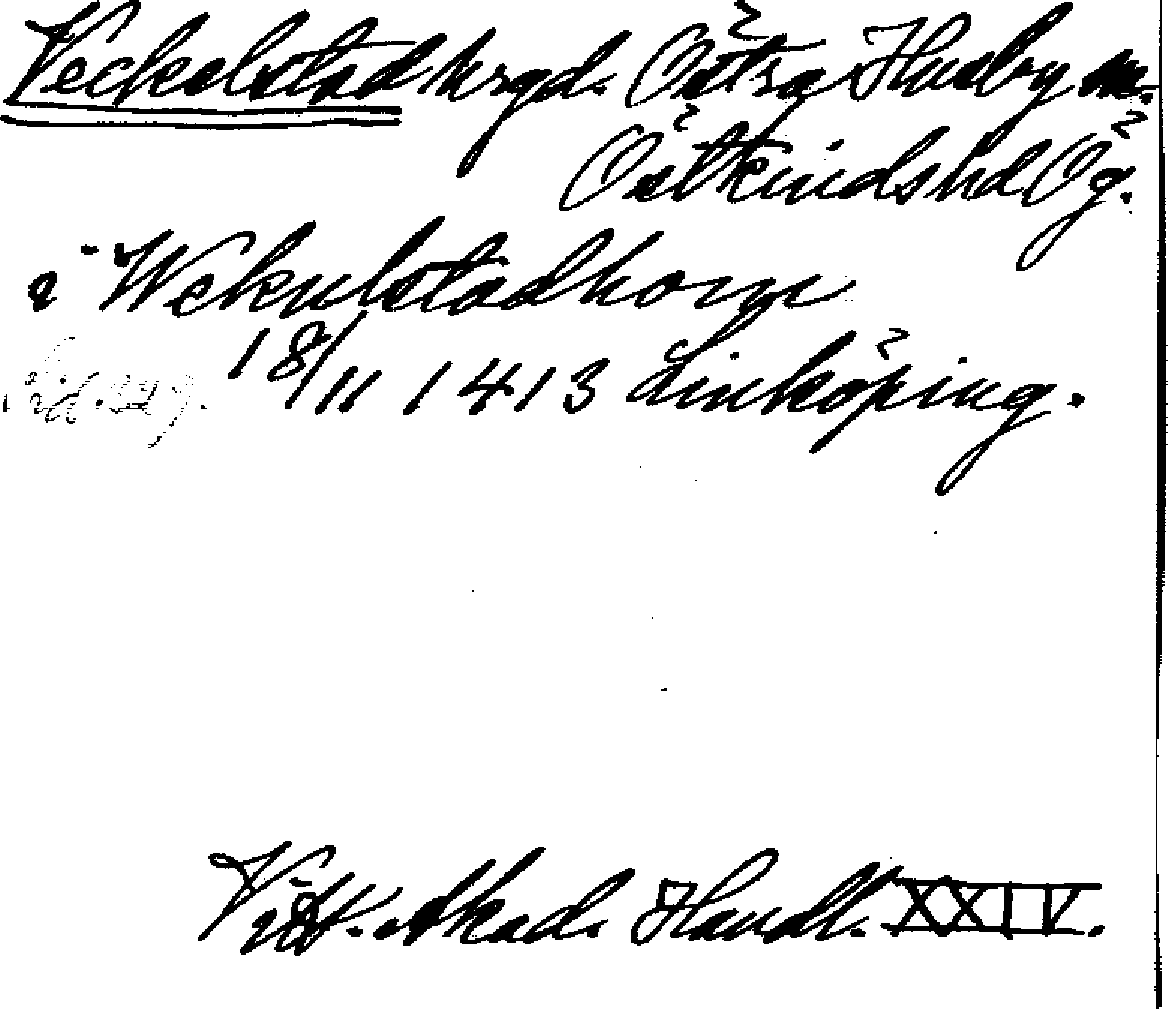 Veckelstad hrgd. Östra Husby
Östkinds hd Ög.
i Wekulstadhom
18/11 1413 Linköping.
Vitt. Akad. Handl. XXIV.